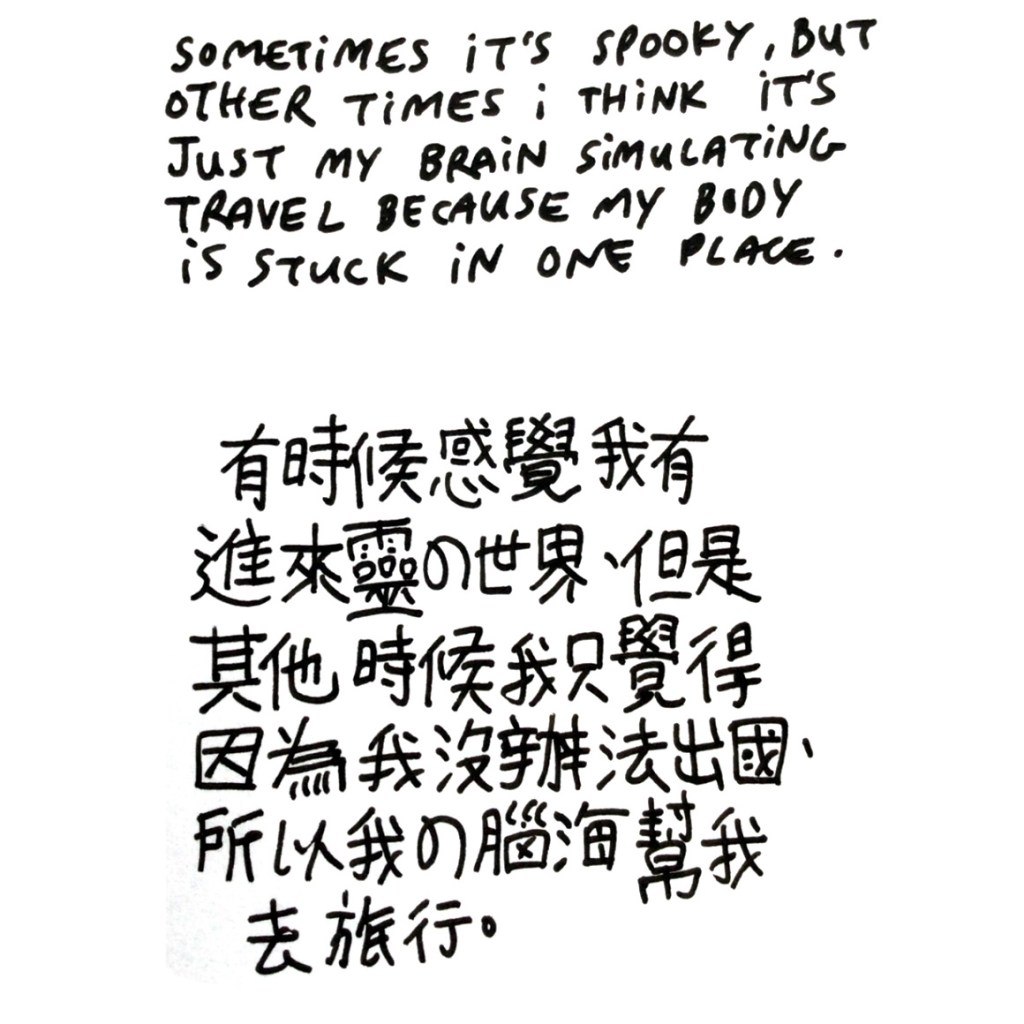 SOMETIMES IT'S SPOOKY, BUT
OTHER TIMES I THINK IT'S
JUST MY BRAIN SIMULATING
TRAVEL BECAUSE MY BODY
IS STUCK IN ONE PLACE.
有時候感覺我有
進來靈の世界、但是
其他時候我只覺得
因為我沒辦法出國、
所以我の腦海幫我
去旅行。